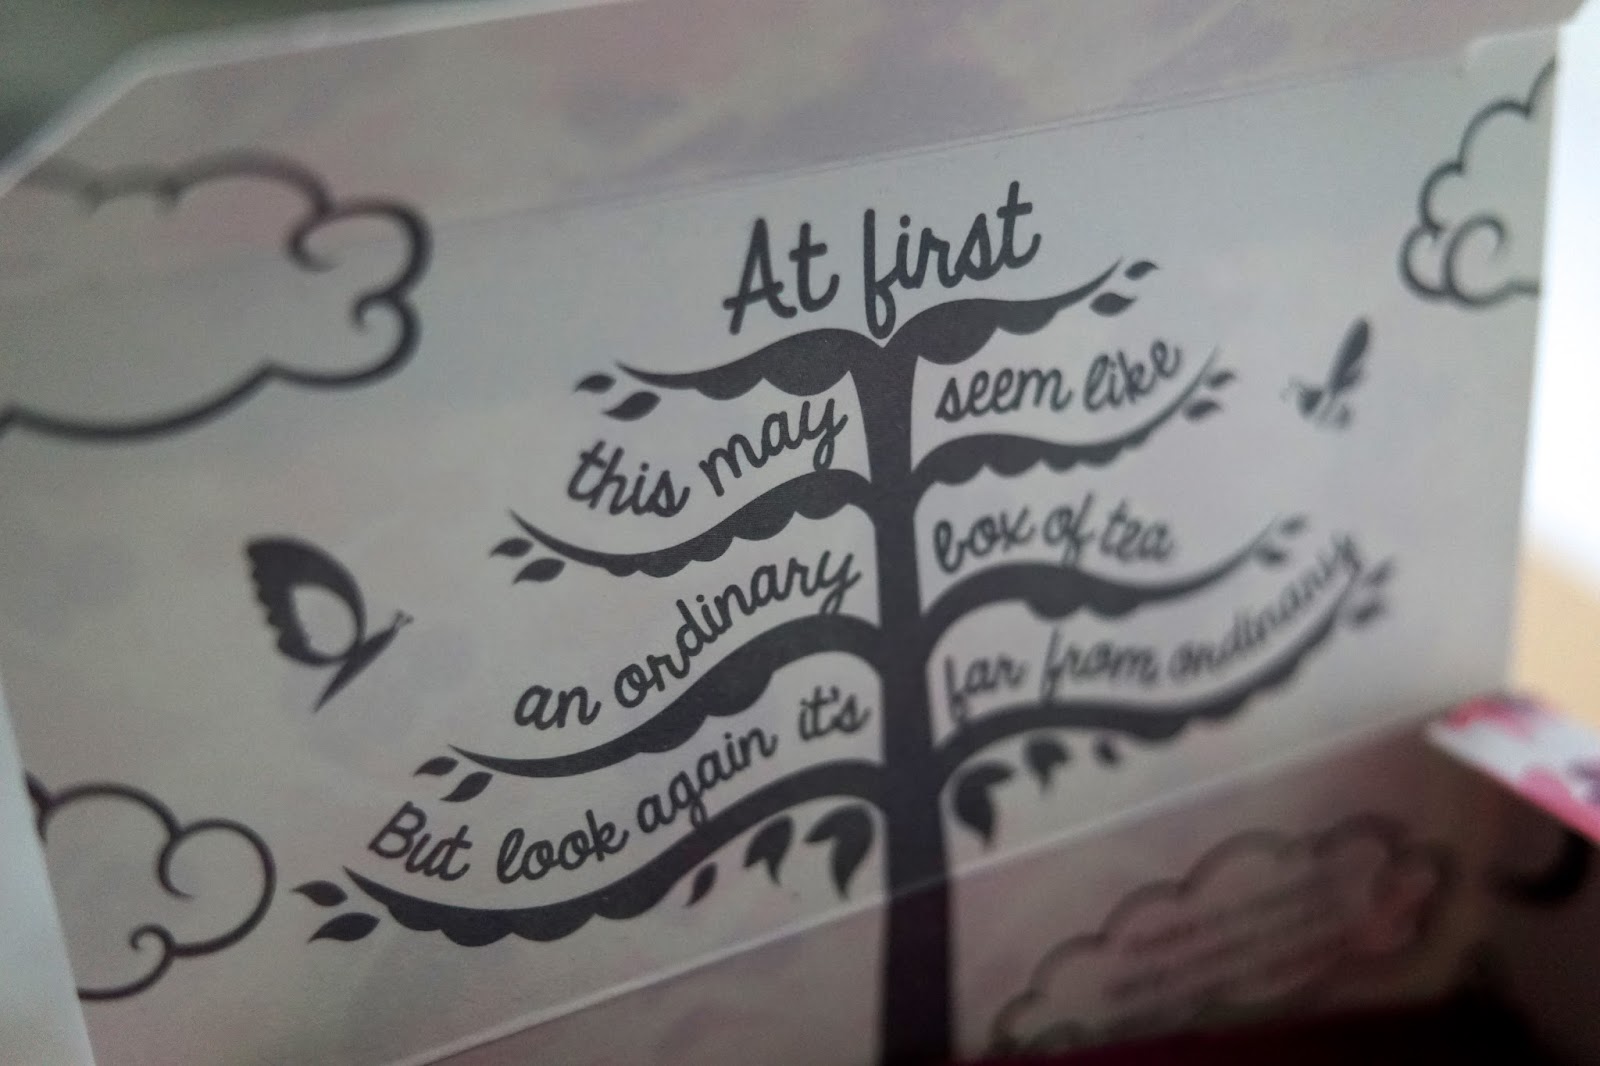 At first
this may seem like
an ordinary box of tea
But look again it's far from ordinarily